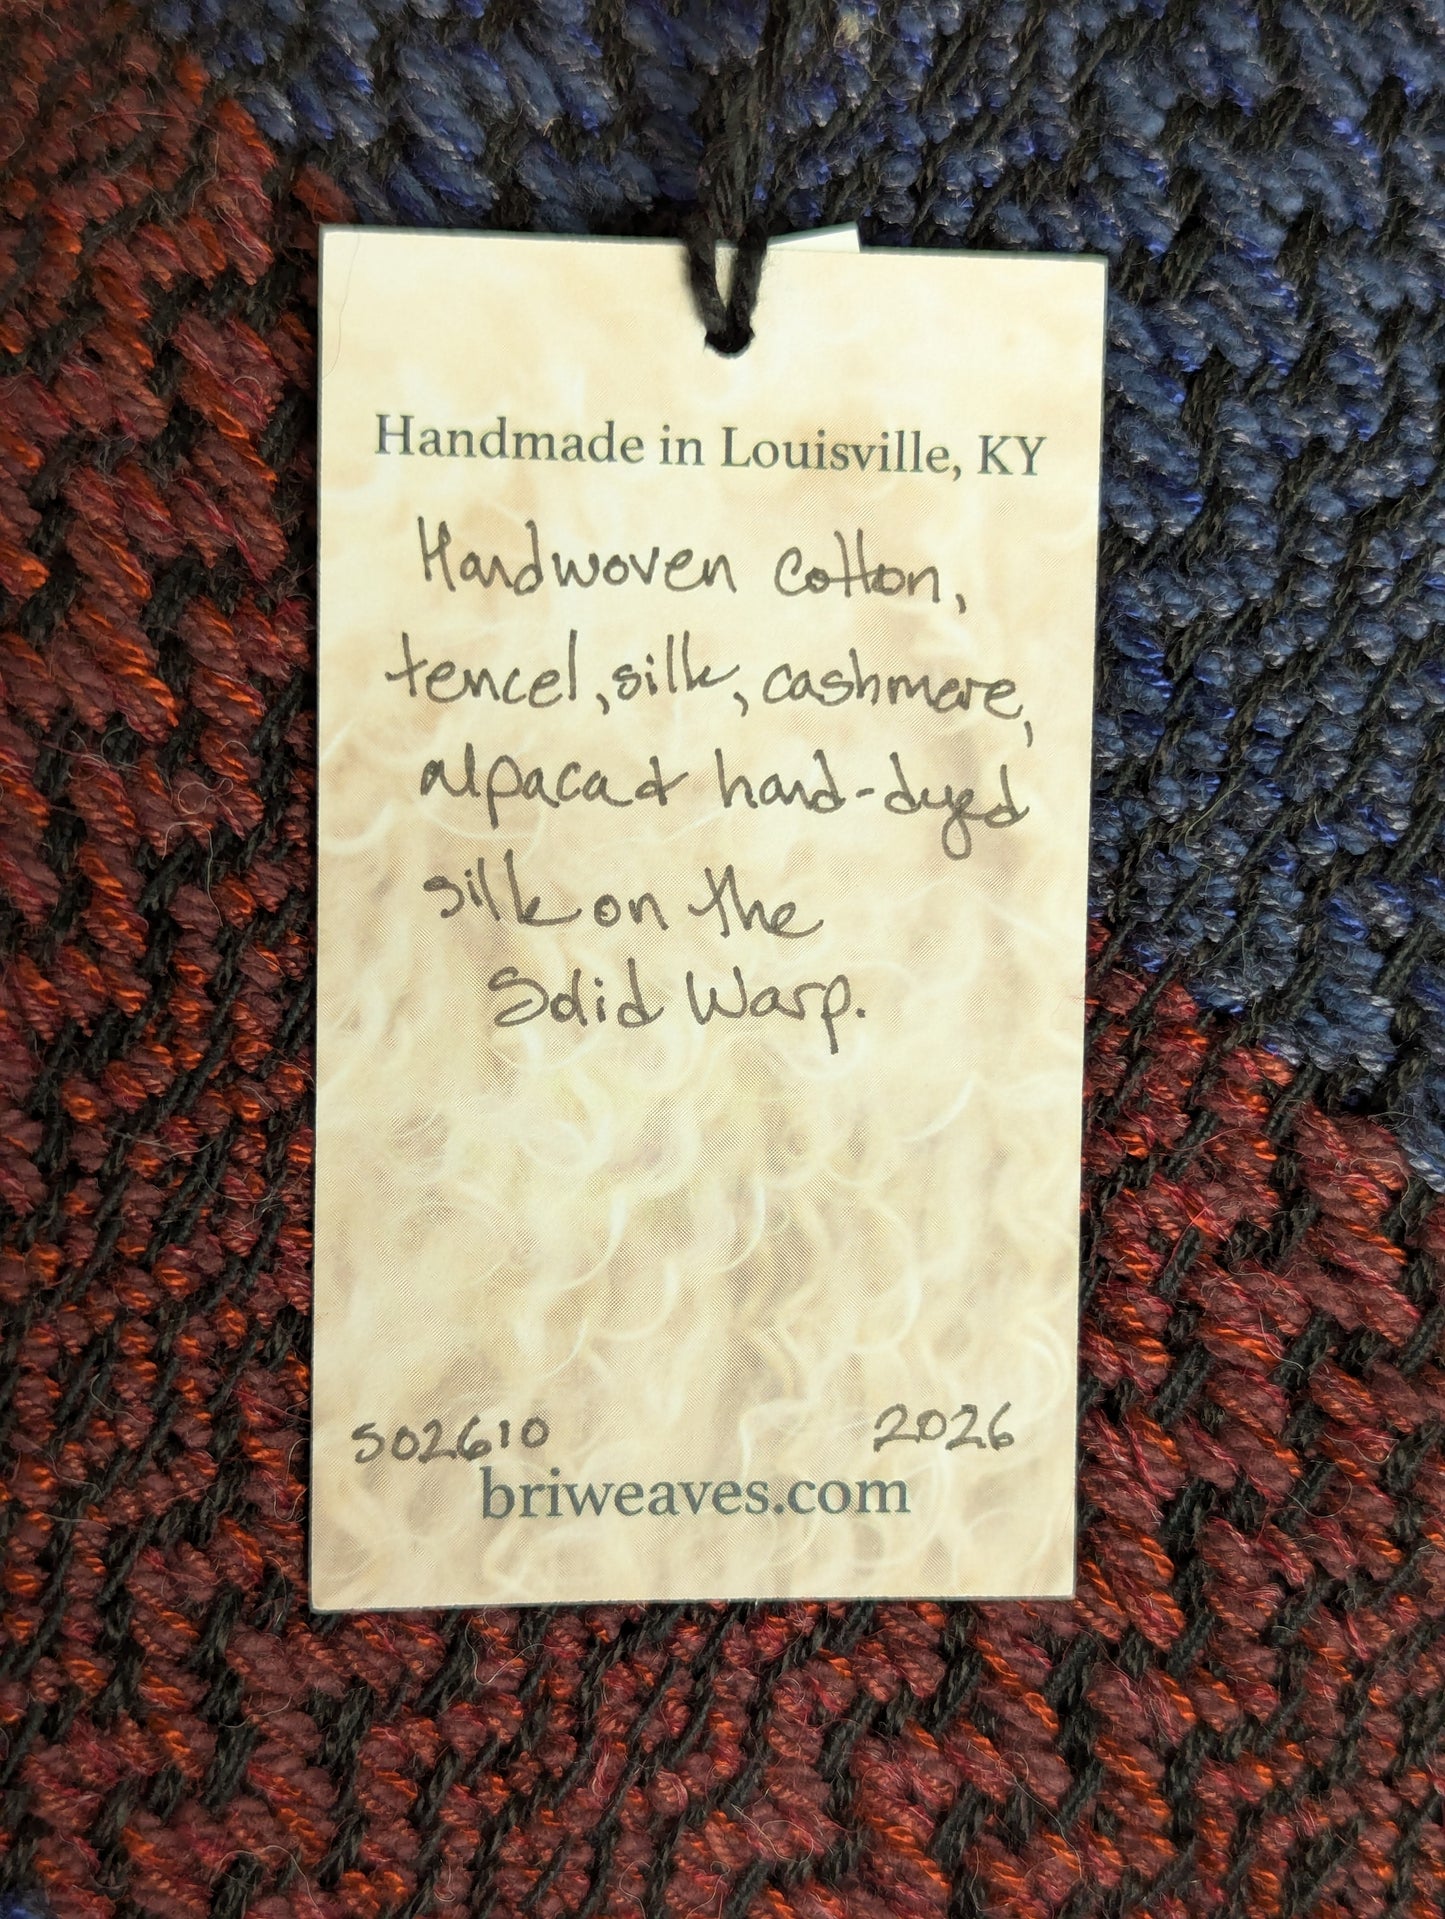 Handmade in Louisville, KY
Handwoven cotton,
tencel, silk, cashmere,
alpaca & hand-dyed
silk on the
Solid Warp.
S02610 2026
briweaves.com